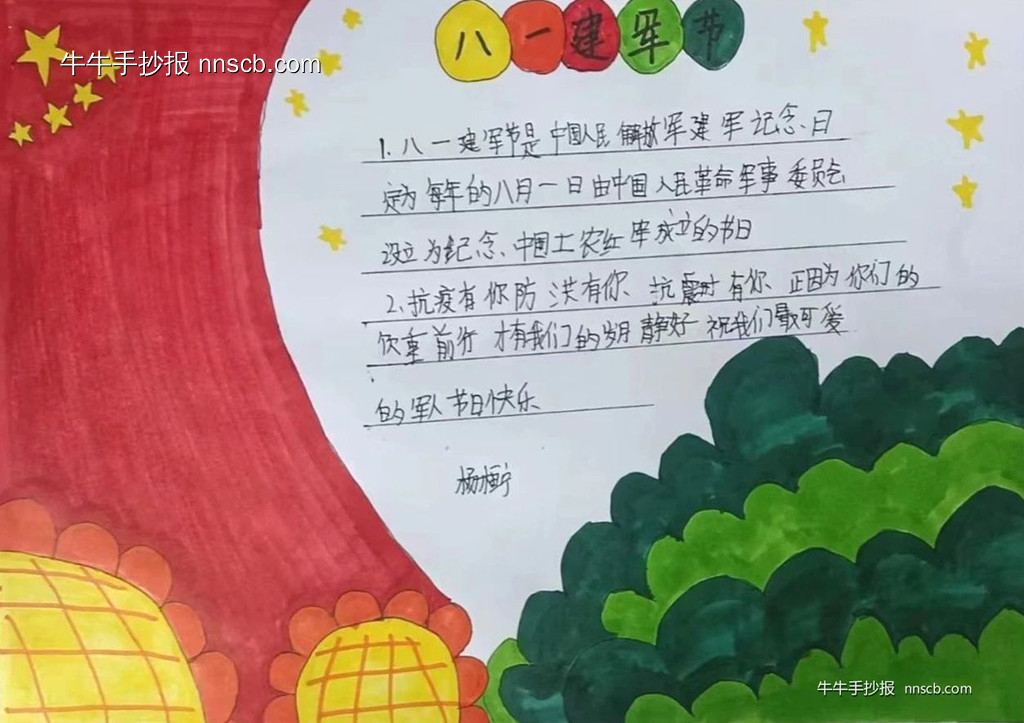 八一建军节
牛牛手抄报 nnscb.com
1.八一建军节是中国人民解放军建军记念、日
定为每年的八月一日由中国人民革命军事委员会
设立为纪念、中国工农红军成立的节日
2.抗疫有你防洪有你、抗震时有你、正因为你们的
饮重前行才有我们的岁月静好祝我们最可爱
的军人节日快乐
杨
牛牛手抄报 nnscb.com